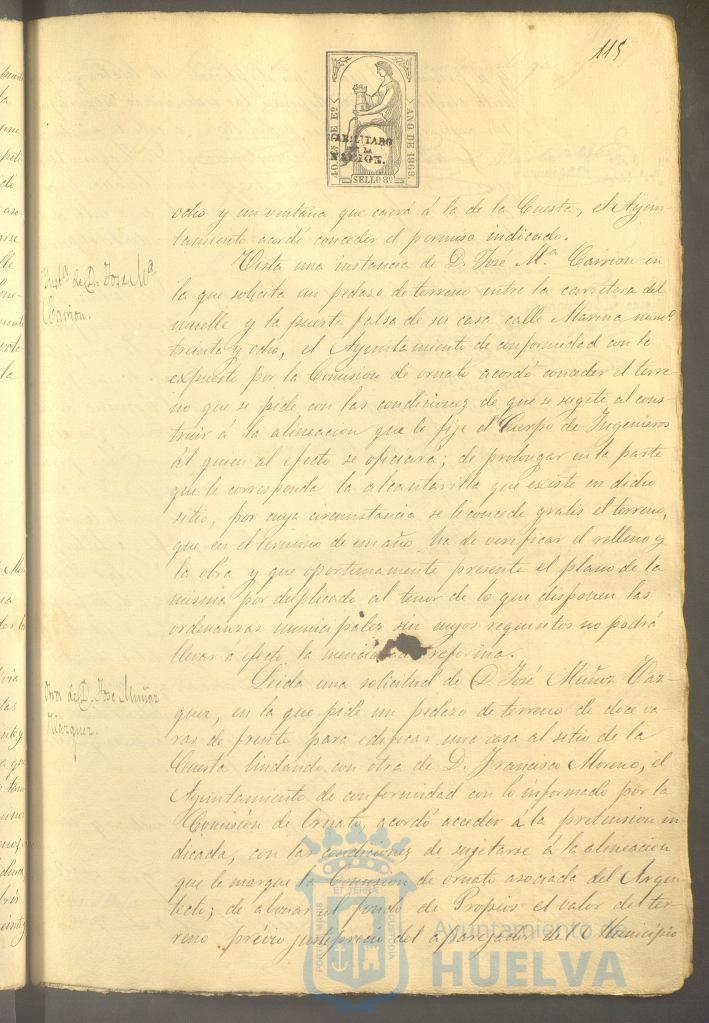 115
40 MS DE Eº
AÑO DE 1869.
HABILITADO
POR LA
NACION.
SELLO 8º
ocho y un ventana que caerá á la de la Cuesta, el Ayun-
tamiento acordó conceder el permiso indicado.
Instª de D. Jose Mª
Carrion.
Vista una instancia de D. José M.ª Carrion en
la que solicita un pedazo de terreno entre la carretera del
muelle y la puerta falsa de su casa calle Marina numº
treinta y ocho, el Ayuntamiento de conformidad con lo
expuesto por la Comision de ornato acordó conceder el terre-
no que se pide con las condiciones de que se sugete al cons-
truir á la alineacion que le fije el Cuerpo de Ingenieros
ál quien al efecto se oficiará; de prolongar en la parte
que le corresponda la alcantarilla que existe en dicho
sitio, por cuya circunstancia se le concede gratis el terreno,
que en el termino de un año ha de verificar el relleno y
la obra y que oportunamente presente el plano de la
misma por duplicado al tenor de lo que disponen las
ordenanzas municipales sin cuyos requisitos no podrá
llevar a efecto la mencionada reforma.
Otra de D. Jose Muñoz
Vazquez.
Leida una solicitud de D José Muñoz Vaz-
quez, en la que pide un pedazo de terreno de doce va-
ras de frente para edificar una casa al sitio de la
Cuesta lindando con otra de D. Francisco Moreno, el
Ayuntamiento de conformidad con lo informado por la
Comision de Ornato acordó acceder á la pretension in
dicada, con las condiciones de sugetarse á la alineacion
que le marque la Comision de ornato asociada del Arqui-
tecto; de abonar al fondo de Propios el valor del ter-
reno previo justiprecio del aparejador del Municipio
PORTUS MARIS
ET TERRÆ
CUSTODIA
Ayuntamiento de
HUELVA